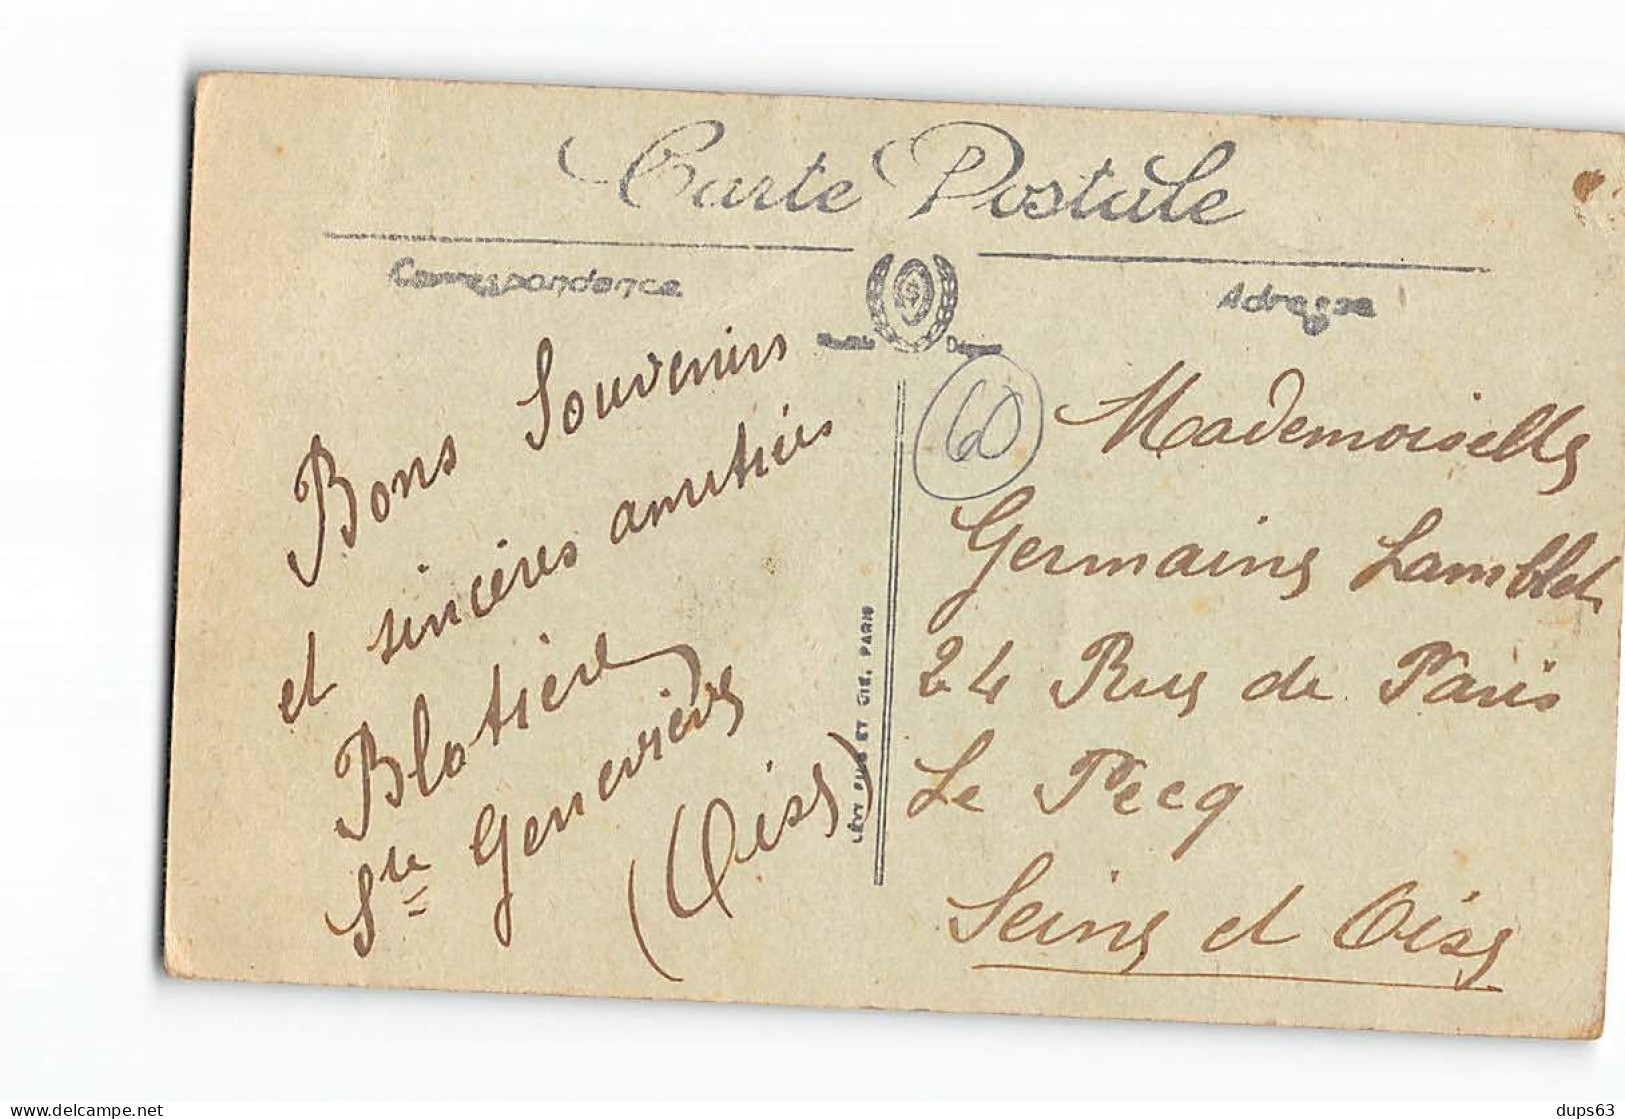 Carte Postale
Correspondance
Adresse
Modèle Déposé
Bons Souvenirs
et sincères amitiés
Blotière
Ste Geneviève
(Oise)
LÉVY FILS ET CIE, PARIS
60
Mademoiselle
Germaine Lamblet
24 Rue de Paris
Le Pecq
Seine et Oise
dups63